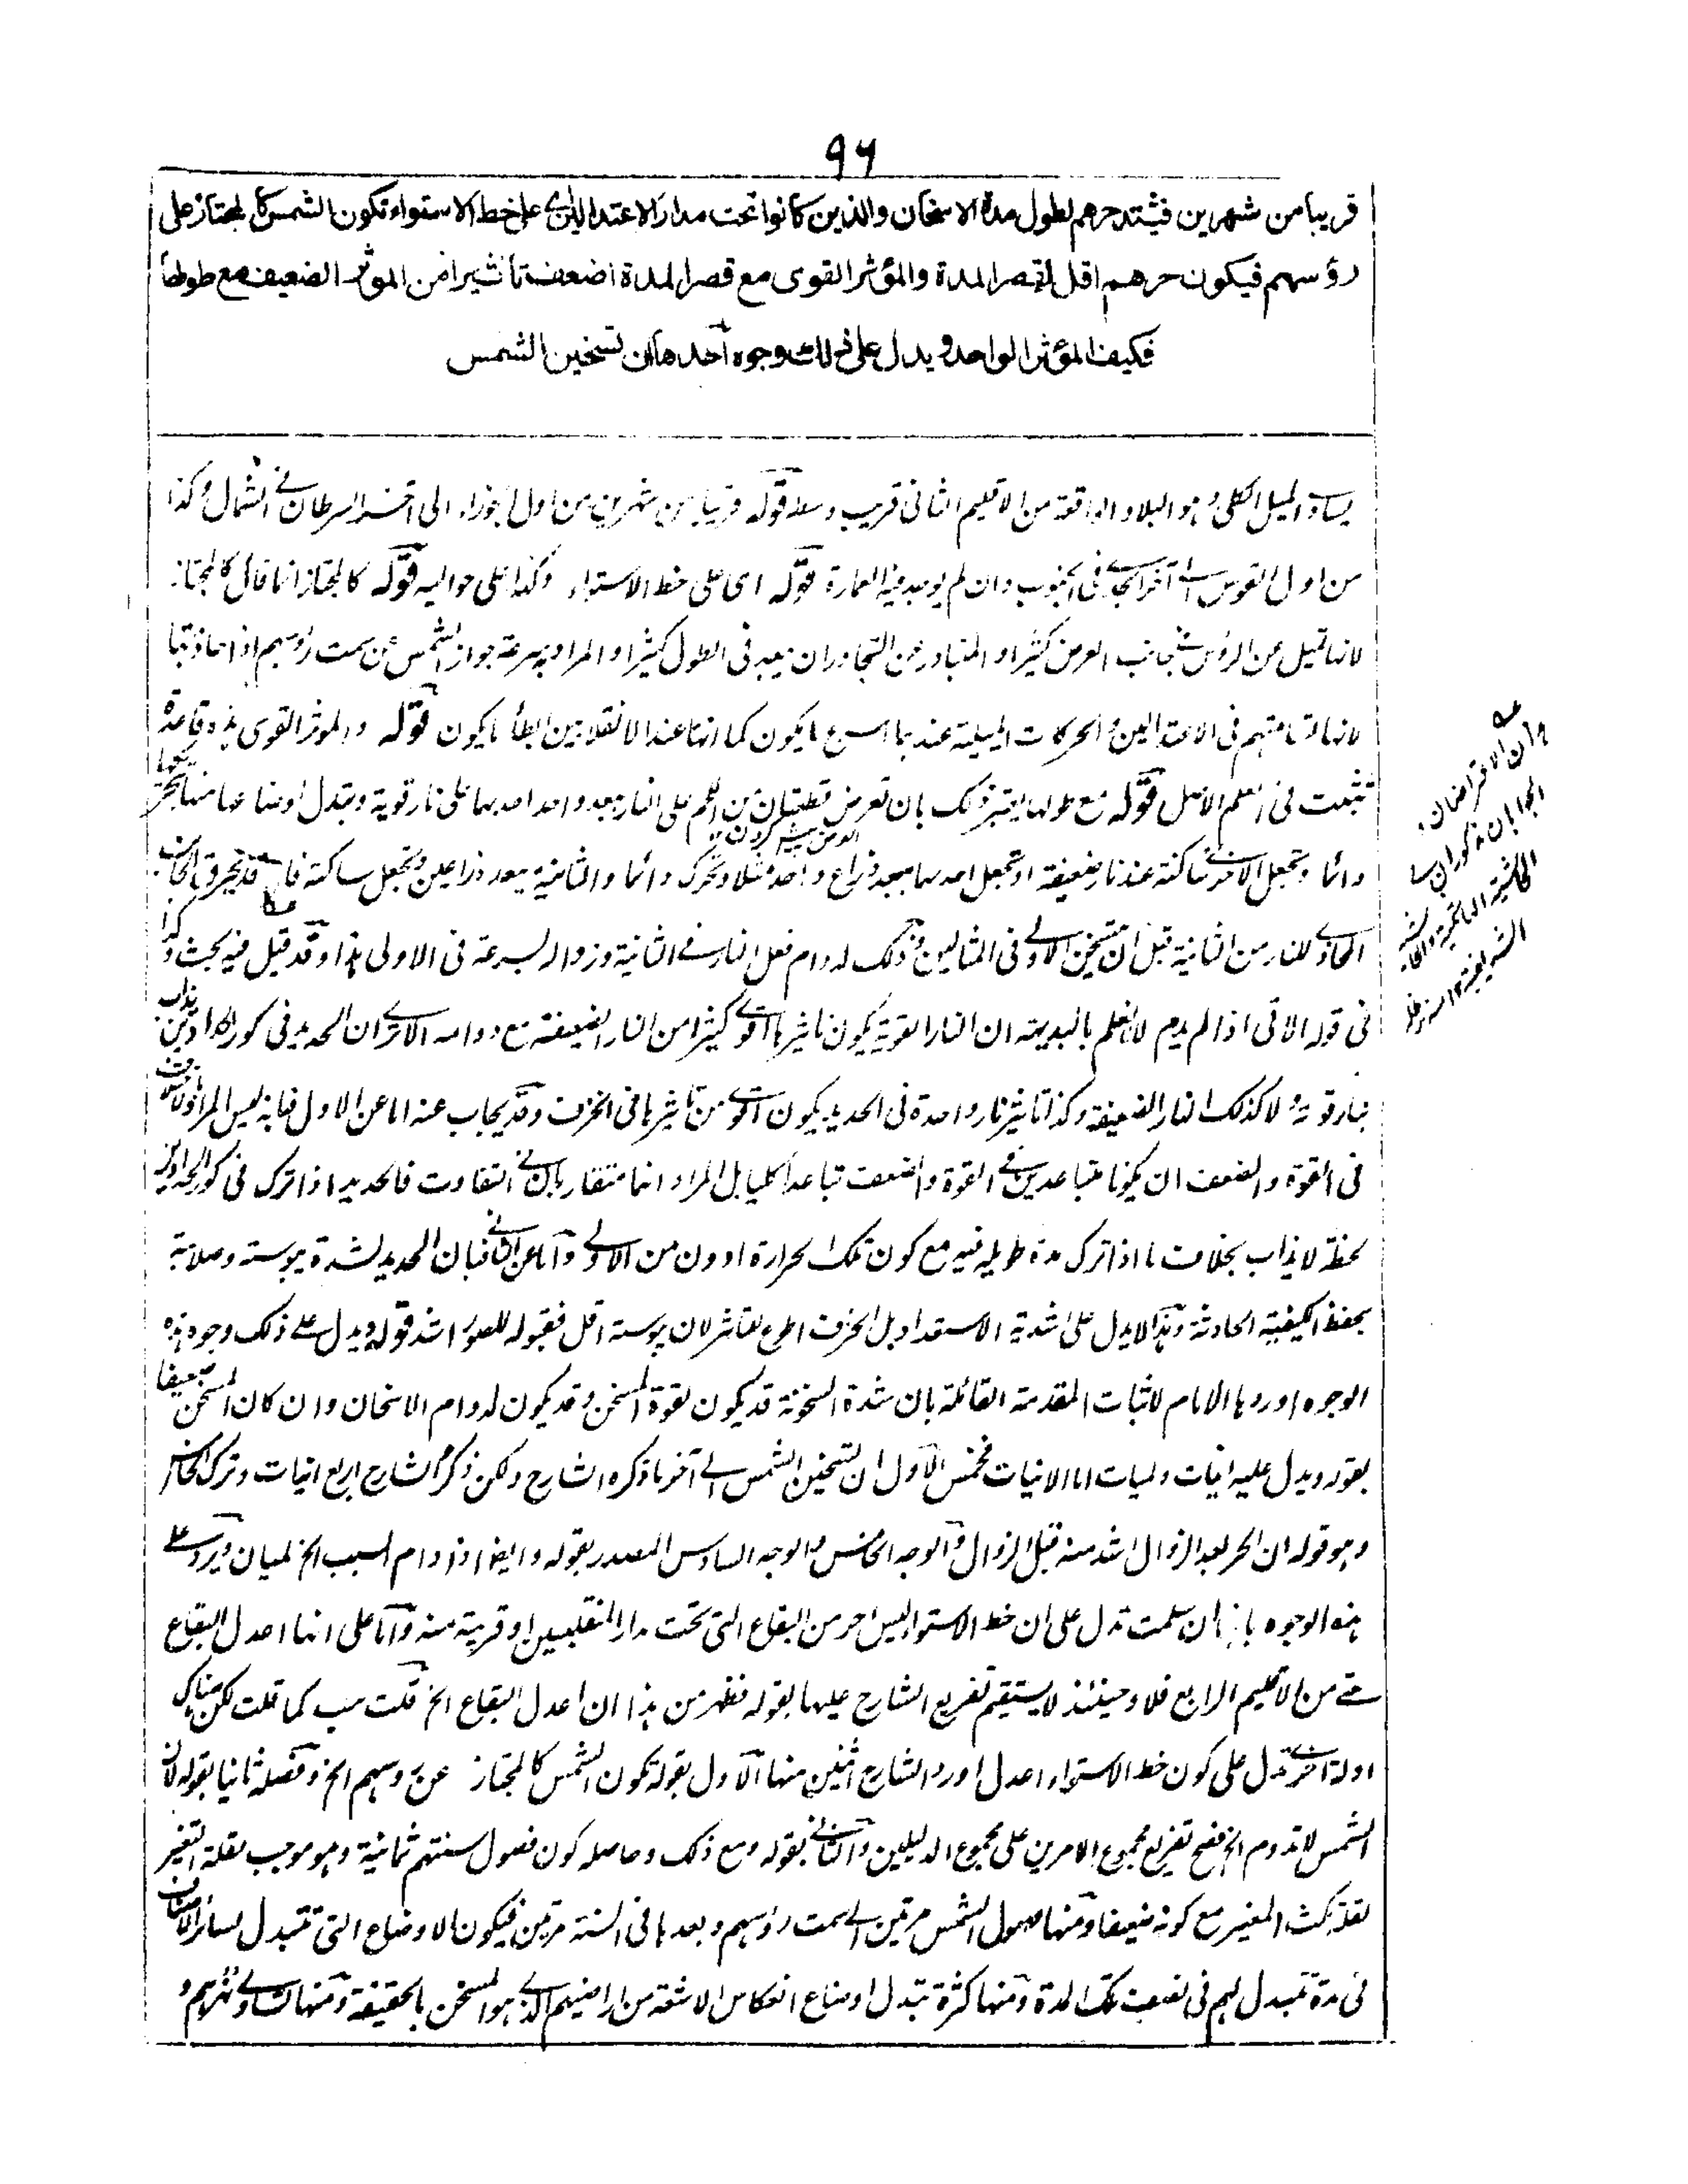 ۹۶
قريبا من شهرين فيشتد حرهم لطول مدة الاسخان والذين كانوا تحت مدار الاعتدالين اى على خط الاستواء تكون الشمس كالمجتاز على
رؤسهم فيكون حرهم اقل لقصر المدة والمؤثر القوى مع قصر المدة اضعف تأثيرا من المؤثر الضعيف مع طولها
فكيف المؤثر الواحد ويدل على ذلك وجوه احدها ان تسخين الشمس
يساوى الميل الكلى وهو البلاد الواقعة من الاقليم الثانى قريب وسطه قوله قريبا من شهرين من اول الجوزاء الى آخر السرطان فى الشمال وكذا
من اول القوس الى آخر الجدى فى الجنوب وان لم يوجد فيه العمارة قوله اى على خط الاستواء وكذا على حواليه قوله كالمجتاز انما قال كالمجتاز
لانها تميل عن الرؤس فى جانب العرض كثيرا والمتبادر من التجاوز ان يبعد فى الطول كثيرا والمراد به سرعة جواز الشمس عن سمت رؤسهم اذا حاذتها
لانها تسامتهم فى الاعتدالين والحركات الميلية عندهما اسرع ما يكون كما انها عند الانقلابين ابطأ ما يكون قوله والمؤثر القوى هذه قاعدة
تثبت فى العلم الاعلى قوله مع طولها يعتبر ذلك بان تعرض قطعتان من اللحم على النار ببعد واحد احدهما على نار قوية وتبدل اوضاعها منها بتحريكها
دائما وتجعل الاخرى ساكنة عند نار ضعيفة او تجعل احدهما ببعد ذراع واحد مثلا وتحرك دائما والثانية ببعد ذراعين وتجعل ساكنة فانه قد يحرق الجانب
المحاذى للنار من الثانية قبل ان تسخن الاولى فى المثالين وذلك لدوام فعل النار فى الثانية وزواله بسرعة فى الاولى هذا وقد قيل فيه بحث وكذا
فى قوله الاتى اذا لم يدم لانا نعلم بالبديهة ان النار القوية يكون تأثيرها اقوى كثيرا من النار الضعيفة مع دوامه الا ترى ان الحديد فى كور الحدادين يذاب
بنار قوية ولا كذلك النار الضعيفة وكذا تأثير نار واحدة فى الحديد يكون اقوى من تأثيرها فى الخزف وقد يجاب عنه اما عن الاول فبانه ليس المراد
فى القوة والضعف ان يكونا متباعدين فى القوة والضعف تباعدا كليا بل المراد انهما متقاربان فى التفاوت فالحديد اذا ترك فى كور الحدادين
لحظة لا يذاب بخلاف ما اذا ترك مدة طويلة فيه مع كون تلك الحرارة ادون من الاولى واما عن الثانى فبان الحديد لشدة يبوسته وصلابته
يحفظ الكيفية الحادثة وهذا لا يدل على شدية الاستعداد بل الخزف اطوع للتأثر لان يبوسته اقل فقبوله للصور اشد قوله ويدل على ذلك وجوه هذه
الوجوه اوردها الامام لاثبات المقدمة القائلة بان شدة السخونة قد يكون لقوة المسخن وقد يكون لدوام الاسخان وان كان المسخن ضعيفا
بقوله ويدل عليه انيات ولميات اما الانيات فخمس الاول ان تسخين الشمس الى آخر ما ذكره الشارح ولكن ذكر الشارح اربع انيات وترك الخامس
وهو قوله ان الحر بعد الزوال اشد منه قبل الزوال والوجه الخامس والوجه السادس المصدر بقوله وايضا اذا دام السبب الخ لميان ويرد على
هذه الوجوه بانها ان سلمت تدل على ان خط الاستواء ليس احر من البقاع التى تحت مدار المنقلبين او قريبة منه واما على انها اعدل البقاع
حتى من الاقليم الرابع فلا وحينئذ لا يستقيم تفريع الشارح عليها بقوله فظهر من هذا ان اعدل البقاع الخ قلت هب كما قلت لكن هناك
ادلة اخرى تدل على كون خط الاستواء اعدل اورد الشارح اثنين منها الاول بقوله تكون الشمس كالمجتاز عن رؤسهم الخ وفصله ثانيا بقوله لان
الشمس لا تدوم الخ فصح تفريع مجموع الامرين على مجموع الدليلين والثانى بقوله ومع ذلك وحاصله كون فصول سنتهم ثمانية وهو موجب لقلة التغير
لقلة مكث المغير مع كونه ضعيفا ومنها وصول الشمس مرتين الى سمت رؤسهم وبعدها فى السنة مرتين فيكون الاوضاع التى تتبدل لسائر الاصناف
فى مدة تتبدل لهم فى نصف تلك المدة ومنها كثرة تبدل اوضاع انعكاس الاشعة من اراضيهم الذى هو المسخن بالحقيقة ومنها تساوى نهرهم و
عه
وان الاعتراضان
الجوابان مذكوران